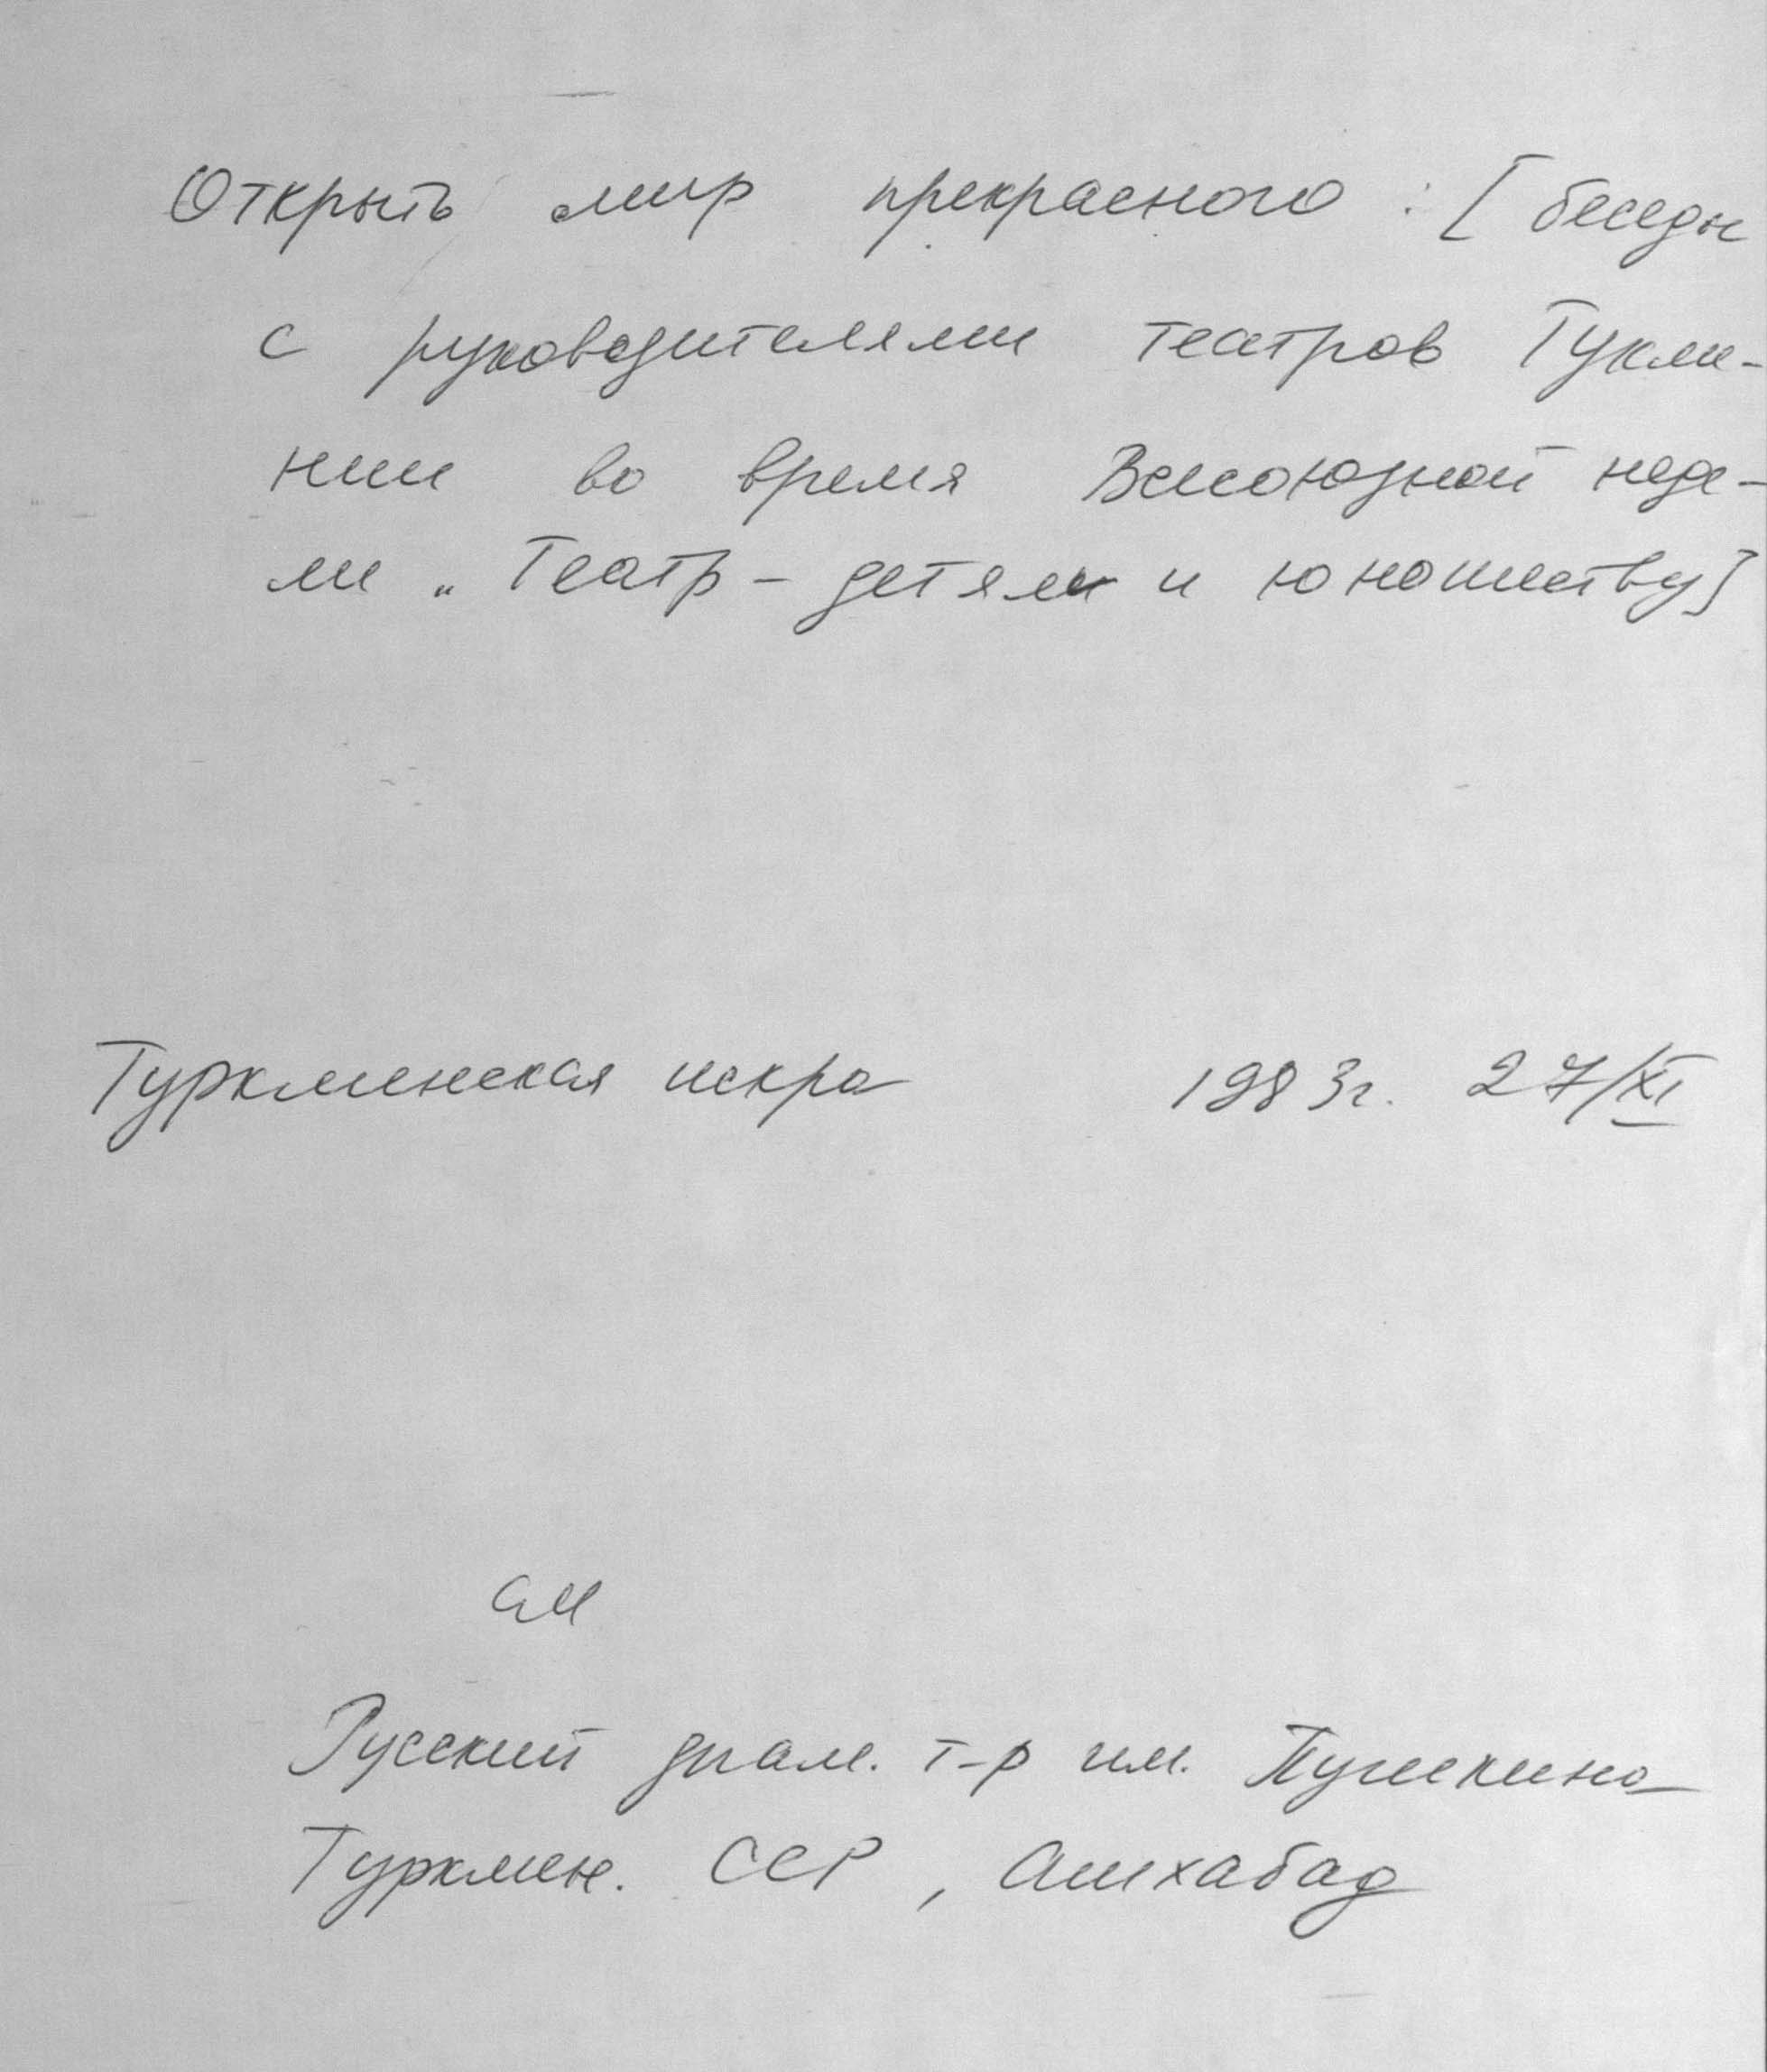 Открыть мир прекрасного : [ беседы
с руководителями театров Тукме-
нии во время Всесоюзной неде-
ли „ Театр – детям и юношеству]
Туркменская искра 1983г. 27/XI
см
Русский драм. т-р им. Пушкина
Туркмен. ССР , Ашхабад